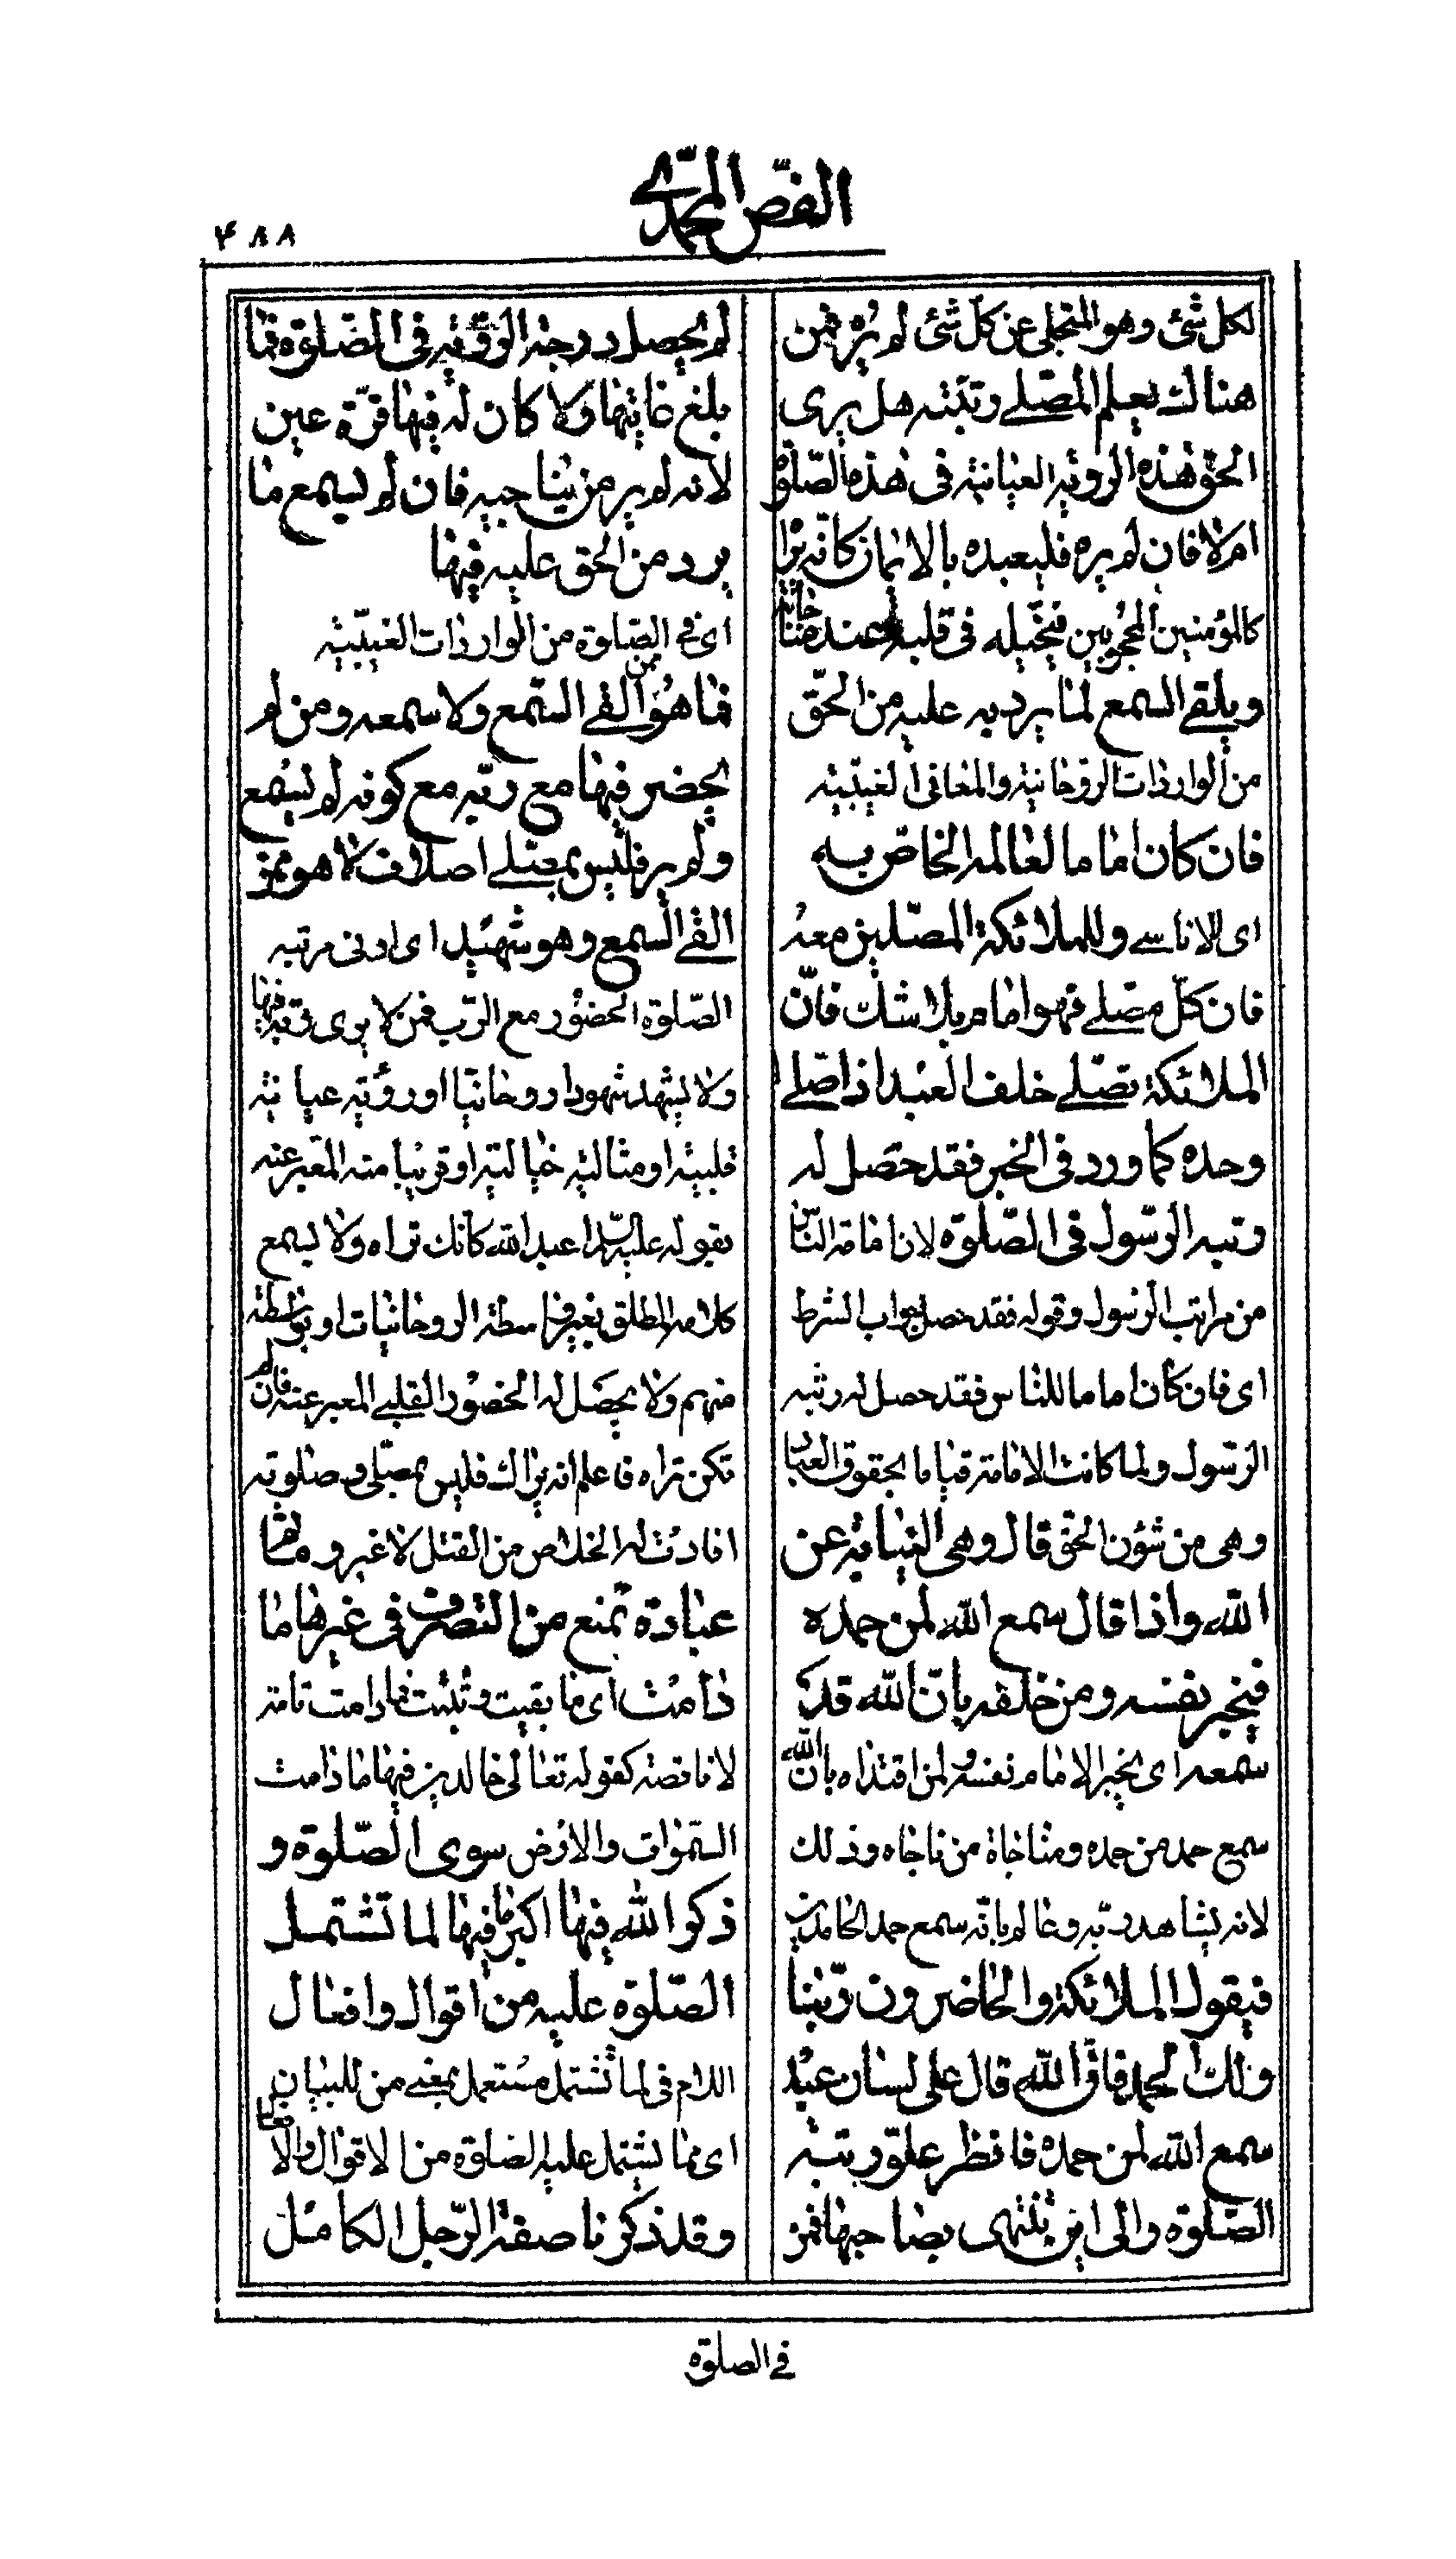 الفصّ المحمّدي
۴۸۸
لكل شئ وهو المتجلى عن كلّ شئ لم يره فمن
هنالك يعلم المصلے رتبته هل يرى
الحق هذه الرؤية العيانية فى هذه الصّلوة
ام لا فان لم يره فليعبده بالايمان كانّه يراه
كالمؤمنين المحجوبين فيخيّله فى قلبه عند مناجاته
ويلقے السمع لما يرد به عليه من الحقّ
من الواردات الروحانية والمعانى الغيبّية
فان كان اماما لعالمه الخاصّ به
اى للاناسے وللملائكة المصلّين معه
فان كلّ مصلے فهو امام بلا شك فانّ
الملائكة تصلّے خلف العبد اذا صلّے
وحده كما ورد فى الخبر فقد حصل له
رتبه الرّسول فى الصّلوة لان امامة الناس
من مراتب الرسول وقوله فقد حصل جواب الشرط
اى فان كان اماما للناس فقد حصل له رتبه
الرّسول ولما كانت الامامة قياما بحقوق العباد
وهى من شؤن الحقّ قال وهى النيابة عن
الله واذا قال سمع الله لمن حمده
فيخبر نفسه ومن خلفه بانّ الله قد
سمعه اى يخبر الامام نفسه ولمن اقتداه بان الله
سمع حمد من حمده ومناجاة من ناجاه وذلك
لانه يشاهد ربّه وعالم بانّه سمع حمد الحامدين
فيقول الملائكة والحاضرون ربّنا
ولك الحمد فانّ الله قال على لسان عبده
سمع الله لمن حمده فانظر علوّ رتبة
الصّلوة والى اين تنتهى بصاحبها فمن
لم يحصل درجة الرؤية فى الصّلوة فما
بلغ غايتها ولا كان له فيها قرّة عين
لانه لم ير من يناجيه فان لم يسمع ما
يرد من الحق عليه فيها
اى فے الصّلوة من الواردات الغيبيّة
فما هو ممن القے السّمع ولا سمعه ومن لم
يحضر فيها مع ربّه مع كونه لم يسمع
ولم ير فليس بمصلے اصلا ف لا هو ممن
القے السمع وهو شهيد اى ادنى مرتبه
الصّلوة الحضور مع الرّب فمن لا يرى ربّه فيها
ولا يشهد شهودا روحانيّا او رؤية عيانية
قلبية او مثالية خيالية او قريبا منه المعبر عنه
بقوله عليه السلام اعبد الله كانك تراه ولا يسمع
كلامه المطلق بغير واسطة الروحانيات او بواسطة
منهم ولا يحصل له الحضور القلبے المعبر عنه فان لم
تكن تراه فاعلم انه يراك فليس بمصلى وصلوته
افادت له الخلاص من القتل لا غير وما ثمّ
عبادة تمنع من التصرف فى غيرها ما
دامت اى ما بقيت وثبتت فما دامت تامة
لا ناقصة كقوله تعالى خالدين فيها ما دامت
السموات والارض سوى الصّلوة و
ذكر الله فيها اكبر ما فيها لما تشتمل
الصّلوة عليه من اقوال وافعال
اللام فى لما تشتمل مستعمل بمعنے من للبيان
اى مما يشتمل عليه الصلوة من الاقوال والافعال
وقد ذكرنا صفة الرّجل الكامل
فے الصلوة